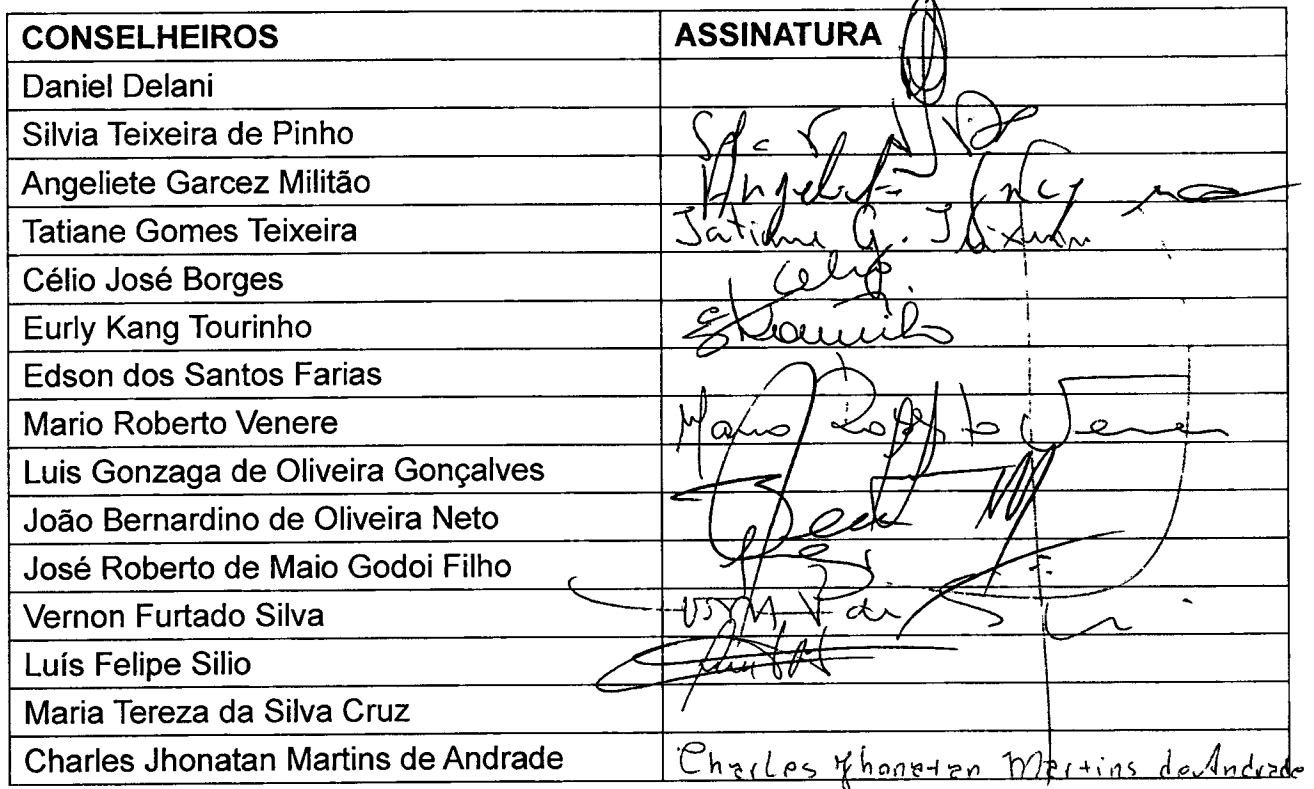 CONSELHEIROS ASSINATURA
Daniel Delani
Silvia Teixeira de Pinho
Angeliete Garcez Militão
Tatiane Gomes Teixeira Tatiane G. Teixeira
Célio José Borges Celio
Eurly Kang Tourinho
Edson dos Santos Farias
Mario Roberto Venere Mario Roberto Venere
Luis Gonzaga de Oliveira Gonçalves
João Bernardino de Oliveira Neto
José Roberto de Maio Godoi Filho
Vernon Furtado Silva
Luís Felipe Silio
Maria Tereza da Silva Cruz
Charles Jhonatan Martins de Andrade Charles Jhonatan Martins de Andrade